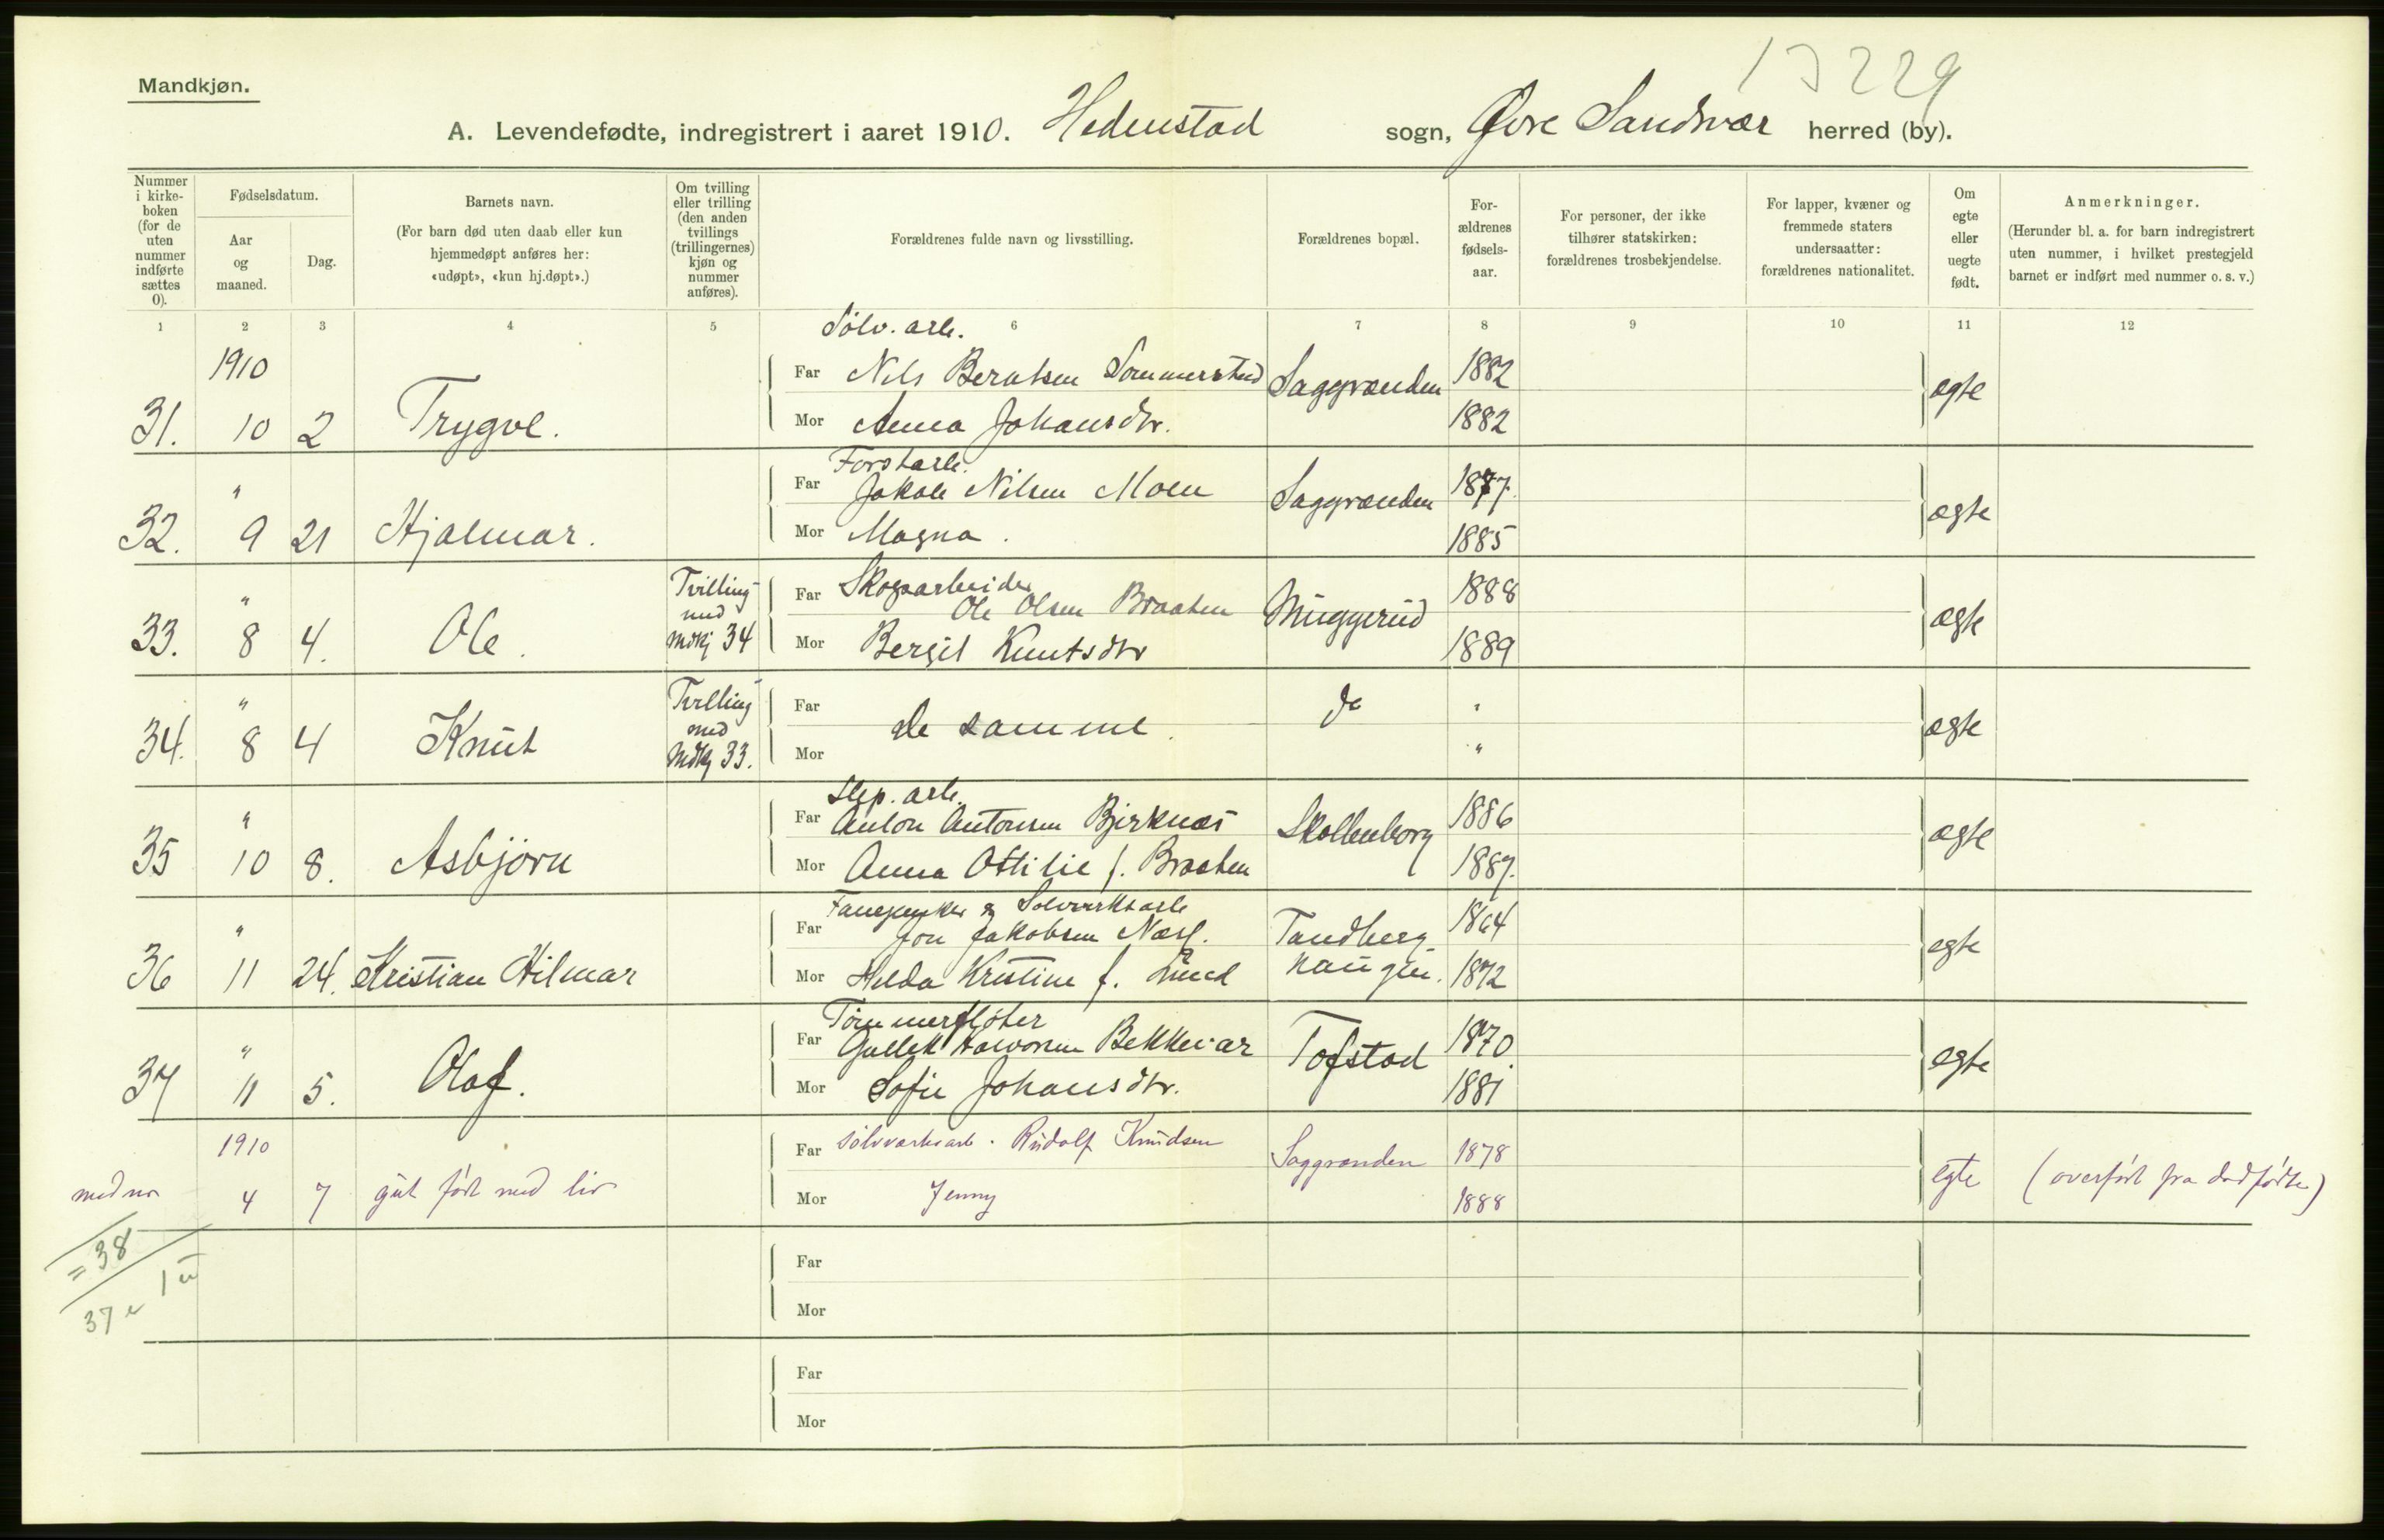 13229
Mandkjøn.
A. Levendefødte, indregistrert i aaret 1910. Hedenstad sogn, Øvre Sandsvær herred (by).
Nummer i kirke-boken (for de uten nummer indførte sættes 0).
Fødselsdatum.
Aar og maaned.
Dag.
Barnets navn.
(For barn død uten daab eller kun hjemmedøpt anføres her: «udøpt», «kun hj.døpt».)
Om tvilling eller trilling (den anden tvillings (trillingernes) kjøn og nummer anføres).
Forældrenes fulde navn og livsstilling.
Forældrenes bopæl.
For-ældrenes fødsels-aar.
For personer, der ikke tilhører statskirken: forældrenes trosbekjendelse.
For lapper, kvæner og fremmede staters undersaatter: forældrenes nationalitet.
Om egte eller uegte født.
Anmerkninger.
(Herunder bl. a. for barn indregistrert uten nummer, i hvilket prestegjeld barnet er indført med nummer o. s. v.)
1 2 3 4 5 6 7 8 9 10 11 12
Sølv. arb.
1910 Far Nils Berntsen Sommerstad Saggrænden 1882
31. 10 2 Trygve. Mor Anna Johansdtr. 1882 ægte
Forstarb.
" Far Jakob Nilsen Moen Saggrænden 1877.
32. 9 21 Hjalmar. Mor Magna. 1885 ægte
Tvilling med Mdkj 34
" Far Skogsarbeider Ole Olsen Braaten Muggerud 1888
33. 8 4. Ole. Mor Bergit Knutsdtr 1889 ægte
Tvilling med Mdkj 33.
" Far de samme. do "
34. 8 4 Knut Mor " ægte
Slip. arb.
" Far Anton Antonsen Birknes Skollenborg 1886
35 10 8. Asbjørn Mor Anna Ottilie f. Braaten 1887. ægte
& Sølvverksarb
" Far Jon Jakobsen Tandberg 1864
36 11 24. Kristian Hilmar Mor Hilda Kristine f. Lund haugen. 1872 egte
Tømmerfløter
" Far Gullek Halvorsen Bekkevar Tofstad 1870
37 11 5. Olaf. Mor Sofie Johansdtr. 1881 egte
1910 Far sølvverksarb. Rudolf Knudsen Saggrænden 1878
4 7 gut født med liv Mor Jenny 1888 egte (overført fra dødfødte)
= 38
1 u
37 e
Far
Mor
Far
Mor